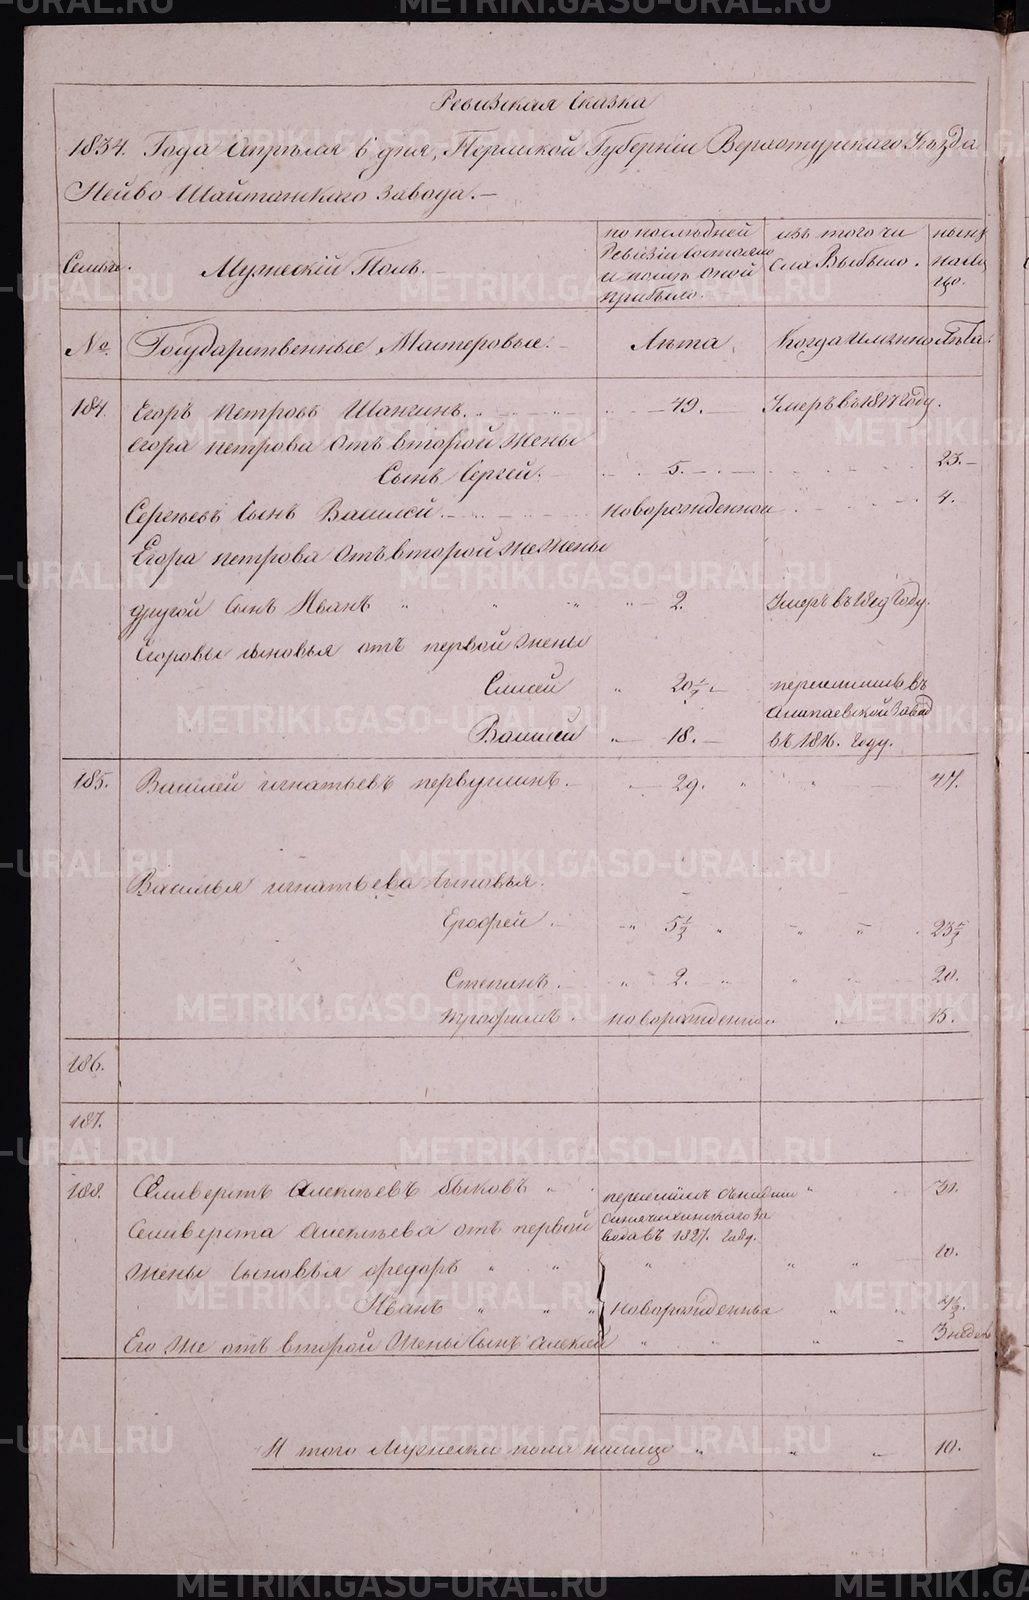 Ревизская Сказка
1834. Года Апреля 6 дня, Пермской Губернии Верхотурскаго Уезда
Нейво Шайтанскаго завода.
Семьи.
Мужеский Полъ.
по последней Ревизии состояло и после оной прибыло.
изъ того числа Выбыло.
ныне на лицо.
№
Государственные Мастеровые.
Лета
Когда именно
Лета.
184. Егоръ Петровъ Шангинъ. 49. Умеръ въ 1817 году.
Егора Петрова Отъ второй жены
Сынъ Сергей. 5. 23.
Сергеевъ Сынъ Василей новорожденной 4.
Егора петрова Отъ второй же жены
другой Сынъ Иванъ 2. Умеръ въ 1819 году.
Егоровы сыновья отъ первой жены
20 ½ переселились въ
Алапаевской Завод
Василей 18. въ 1816. году.
185. Василей игнатьевъ первушинъ. 29. 47.
Василья игнатьева сыновья.
Ерофей. 5 ½ 23 ½
Степанъ. 2. 20.
Трофимъ. новорожденной 15.
186.
187.
188. Селиверстъ Алексеевъ быковъ 31.
Селиверста Алексеева отъ первой
завода въ 1827. году.
жены Сыновья федоръ 10.
Иванъ новорожденные 4 ½.
Его же отъ второй жены Сынъ Алексей 3 недель
И того Мужеска пола налицо 10.
METRIKI.GASO-URAL.RU